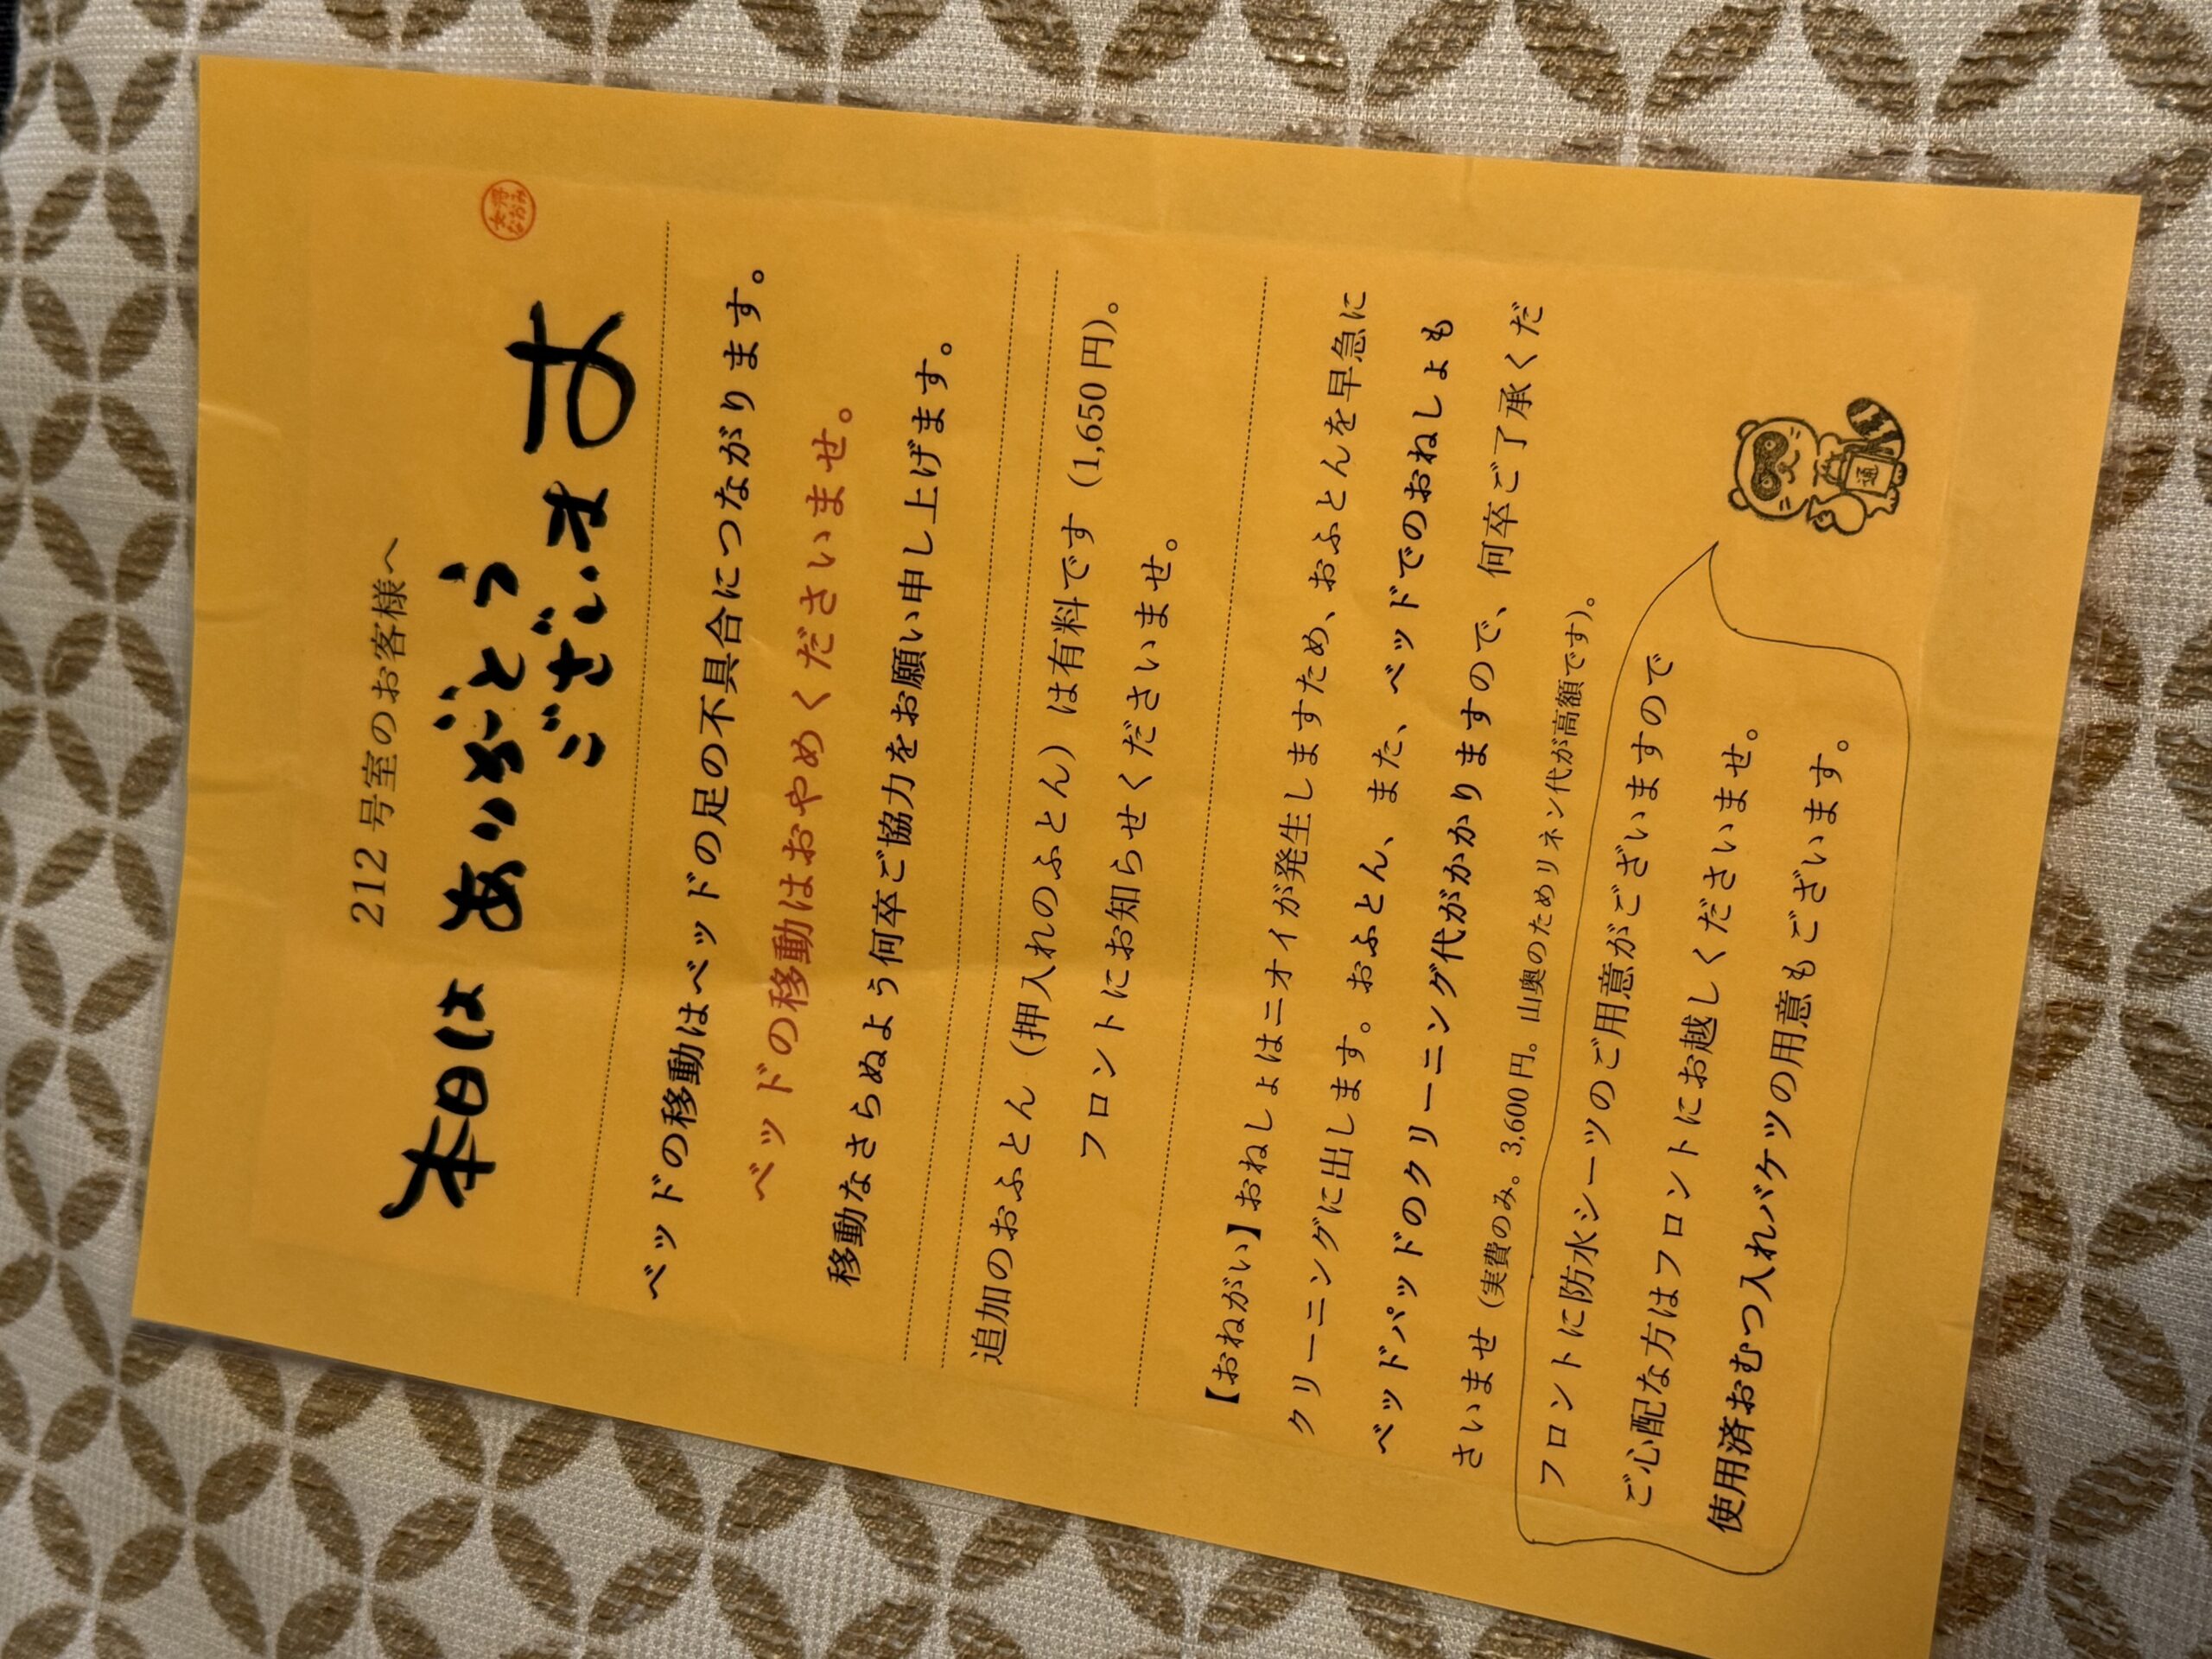 212 号室のお客様へ
本日は ありがとう
ございます
女将
なおみ
ベッドの移動はベッドの足の不具合につながります。
ベッドの移動はおやめくださいませ。
移動なさらぬよう何卒ご協力をお願い申し上げます。
追加のおふとん（押入れのふとん）は有料です（1,650 円）。
フロントにお知らせくださいませ。
【おねがい】おねしょはニオイが発生しますため、おふとんを早急に
クリーニングに出します。おふとん、また、ベッドでのおねしょも
ベッドパッドのクリーニング代がかかりますので、何卒ご了承くだ
さいませ（実費のみ。3,600 円。山奥のためリネン代が高額です）。
フロントに防水シーツのご用意がございますので
ご心配な方はフロントにお越しくださいませ。
使用済おむつ入れバケツの用意もございます。
通